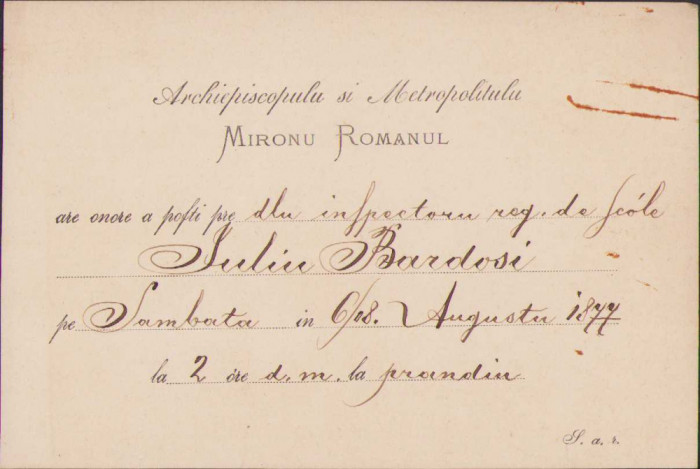 Archiepiscopulu si Metropolitulu
MIRONU ROMANUL
are onore a pofti pre dlu inspectoru reg. de scóle
Iuliu Bardosi
pe Sambata in 6/18. Augustu 1877
la 2 óre d. m. la prandiu
S. a. r.